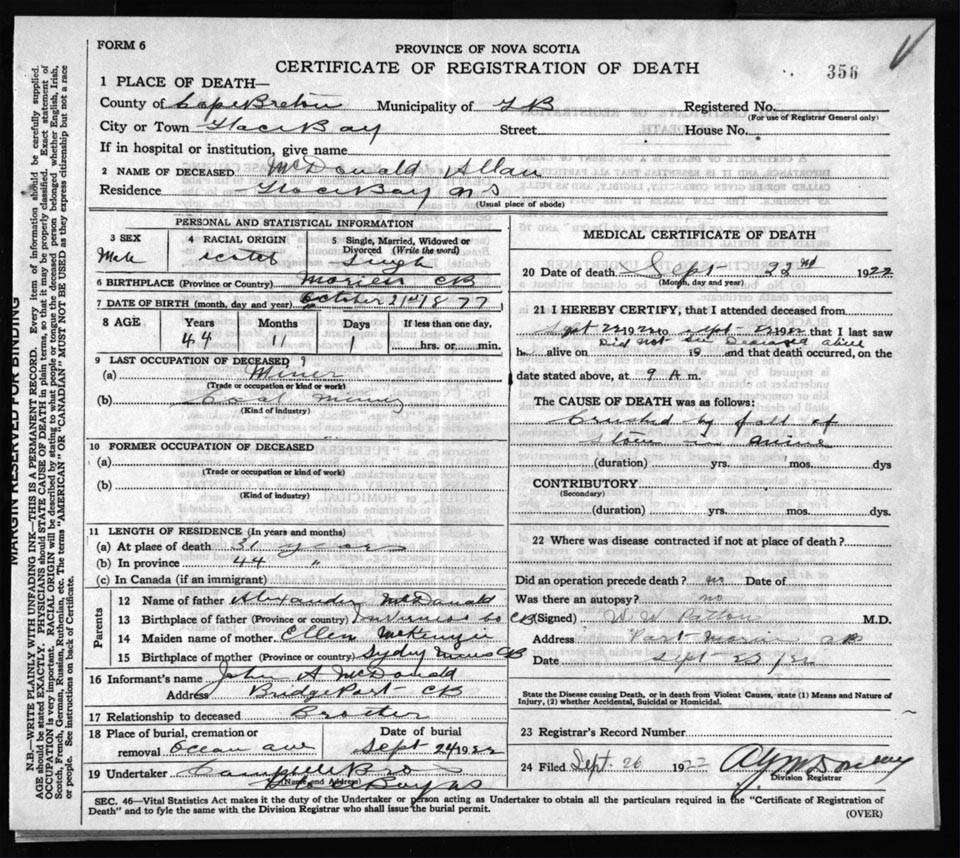 FORM 6
PROVINCE OF NOVA SCOTIA
CERTIFICATE OF REGISTRATION OF DEATH
356
1 PLACE OF DEATH—
County of Cape Breton Municipality of Registered No.
(For use of Registrar General only)
City or Town Glace Bay Street House No.
If in hospital or institution, give name
2 NAME OF DECEASED McDonald Allan
Residence Glace Bay NS
(Usual place of abode)
PERSONAL AND STATISTICAL INFORMATION
3 SEX 4 RACIAL ORIGIN 5 Single, Married, Widowed or Divorced (Write the word)
Male Scotch Single
6 BIRTHPLACE (Province or Country) Morien CB
7 DATE OF BIRTH (month, day and year) October 21st 1877
8 AGE Years Months Days If less than one day,
44 11 1 hrs. or min.
9 LAST OCCUPATION OF DECEASED
(a) Miner
(Trade or occupation or kind of work)
(b) Coal Mining
(Kind of industry)
10 FORMER OCCUPATION OF DECEASED
(a)
(Trade or occupation or kind of work)
(b)
(Kind of industry)
11 LENGTH OF RESIDENCE (In years and months)
(a) At place of death 31 years
(b) In province 44 "
(c) In Canada (if an immigrant)
Parents
12 Name of father Alexander McDonald
13 Birthplace of father (Province or country) Inverness Co CB
14 Maiden name of mother Ellen McKenzie
15 Birthplace of mother (Province or country) Sydney Mines CB
16 Informant's name John A McDonald
Address Bridgeport CB
17 Relationship to deceased Brother
18 Place of burial, cremation or removal Ocean ave Date of burial Sept 24 1922
19 Undertaker Campbell Bro
(Name and Address)
Glace Bay NS
MEDICAL CERTIFICATE OF DEATH
20 Date of death Sept 22nd 1922
(Month, day and year)
21 I HEREBY CERTIFY, that I attended deceased from
Sept 22 1922 to Sept 22 1922 that I last saw
Did not see Deceased alive
h alive on 19 and that death occurred, on the
date stated above, at 9 A.m.
The CAUSE OF DEATH was as follows:
Crushed by fall of
stone in mine
(duration) yrs. mos. dys
CONTRIBUTORY
(Secondary)
(duration) yrs. mos. dys.
22 Where was disease contracted if not at place of death?
Did an operation precede death? no Date of
Was there an autopsy? no
(Signed) W. W. Patton M.D.
Address Port Morien CB
Date Sept 23/22
State the Disease causing Death, or in death from Violent Causes, state (1) Means and Nature of
Injury, (2) whether Accidental, Suicidal or Homicidal.
23 Registrar's Record Number
24 Filed Sept. 26 1922
Division Registrar
SEC. 46—Vital Statistics Act makes it the duty of the Undertaker or person acting as Undertaker to obtain all the particulars required in the "Certificate of Registration of
Death" and to fyle the same with the Division Registrar who shall issue the burial permit.
(OVER)
MARGIN RESERVED FOR BINDING
N.B.—WRITE PLAINLY WITH UNFADING INK—THIS IS A PERMANENT RECORD. Every item of information should be carefully supplied.
AGE should be stated EXACTLY. PHYSICIANS should STATE CAUSE OF DEATH in plain terms, so that it may be properly classified. Exact statement of
OCCUPATION is very important. RACIAL ORIGIN will be described by stating to what people or tongue the deceased person belonged whether English, Irish,
Scotch, French, German, Russian, Ruthenian, etc. The terms "AMERICAN" OR "CANADIAN" MUST NOT BE USED as they express citizenship but not a race
or people. See instructions on back of Certificate.